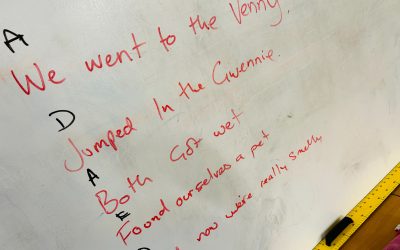 A
We went to the Venny
D
Jumped In the Gwennie.
A
Both Got wet
E
Found ourselves a pet
now we're really smelly